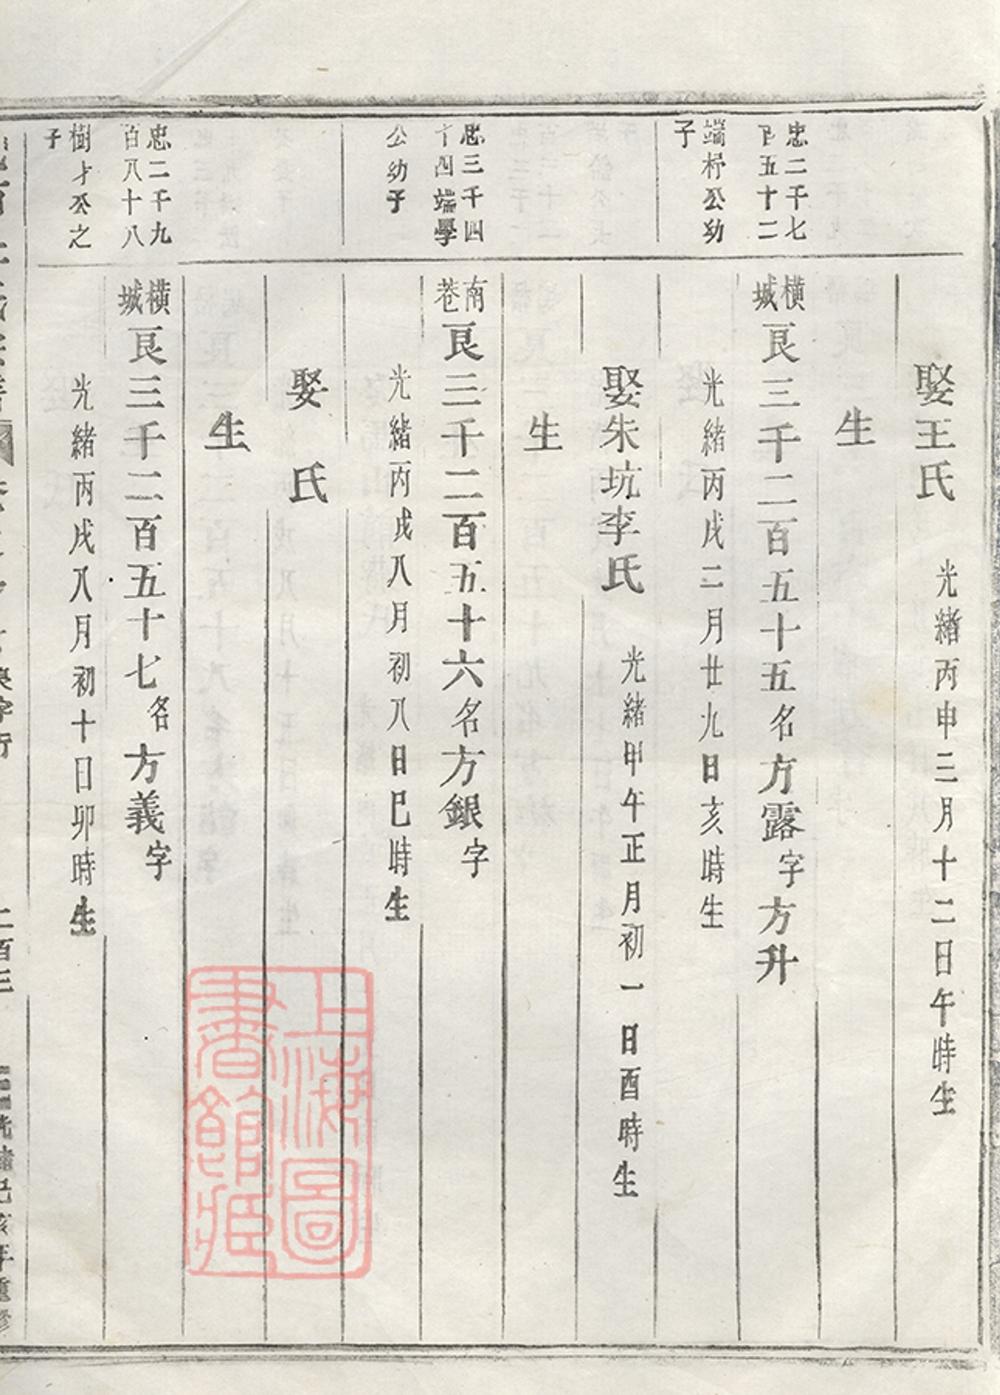 娶王氏 光緒丙申三月十二日午時生
生
忠二千七
百五十二
端杼公幼
子
橫城艮三千二百五十五名方露字方升
光緒丙戌二月廿九日亥時生
娶朱坑李氏 光緒甲午正月初一日酉時生
生
忠三千四
十四端學
公幼子
南巷艮三千二百五十六名方銀字
光緒丙戌八月初八日巳時生
娶 氏
生
忠二千九
百八十八
樹才公之
子
橫城艮三千二百五十七名方義字
光緒丙戌八月初十日卯時生
二百三
光緒己亥年重修
上海圖書館藏